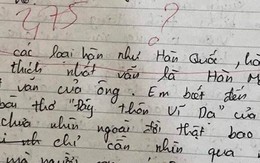 2,75 ?
các loại bận như Hàn Quốc, hà
thích nhất vẫn là Hàn M
văn của ông. Em biết đến
bài thơ "Đây thôn Vĩ Dạ" của
chưa nhìn ngoài đời thật bao
chỉ cần nhìn qua
mà người